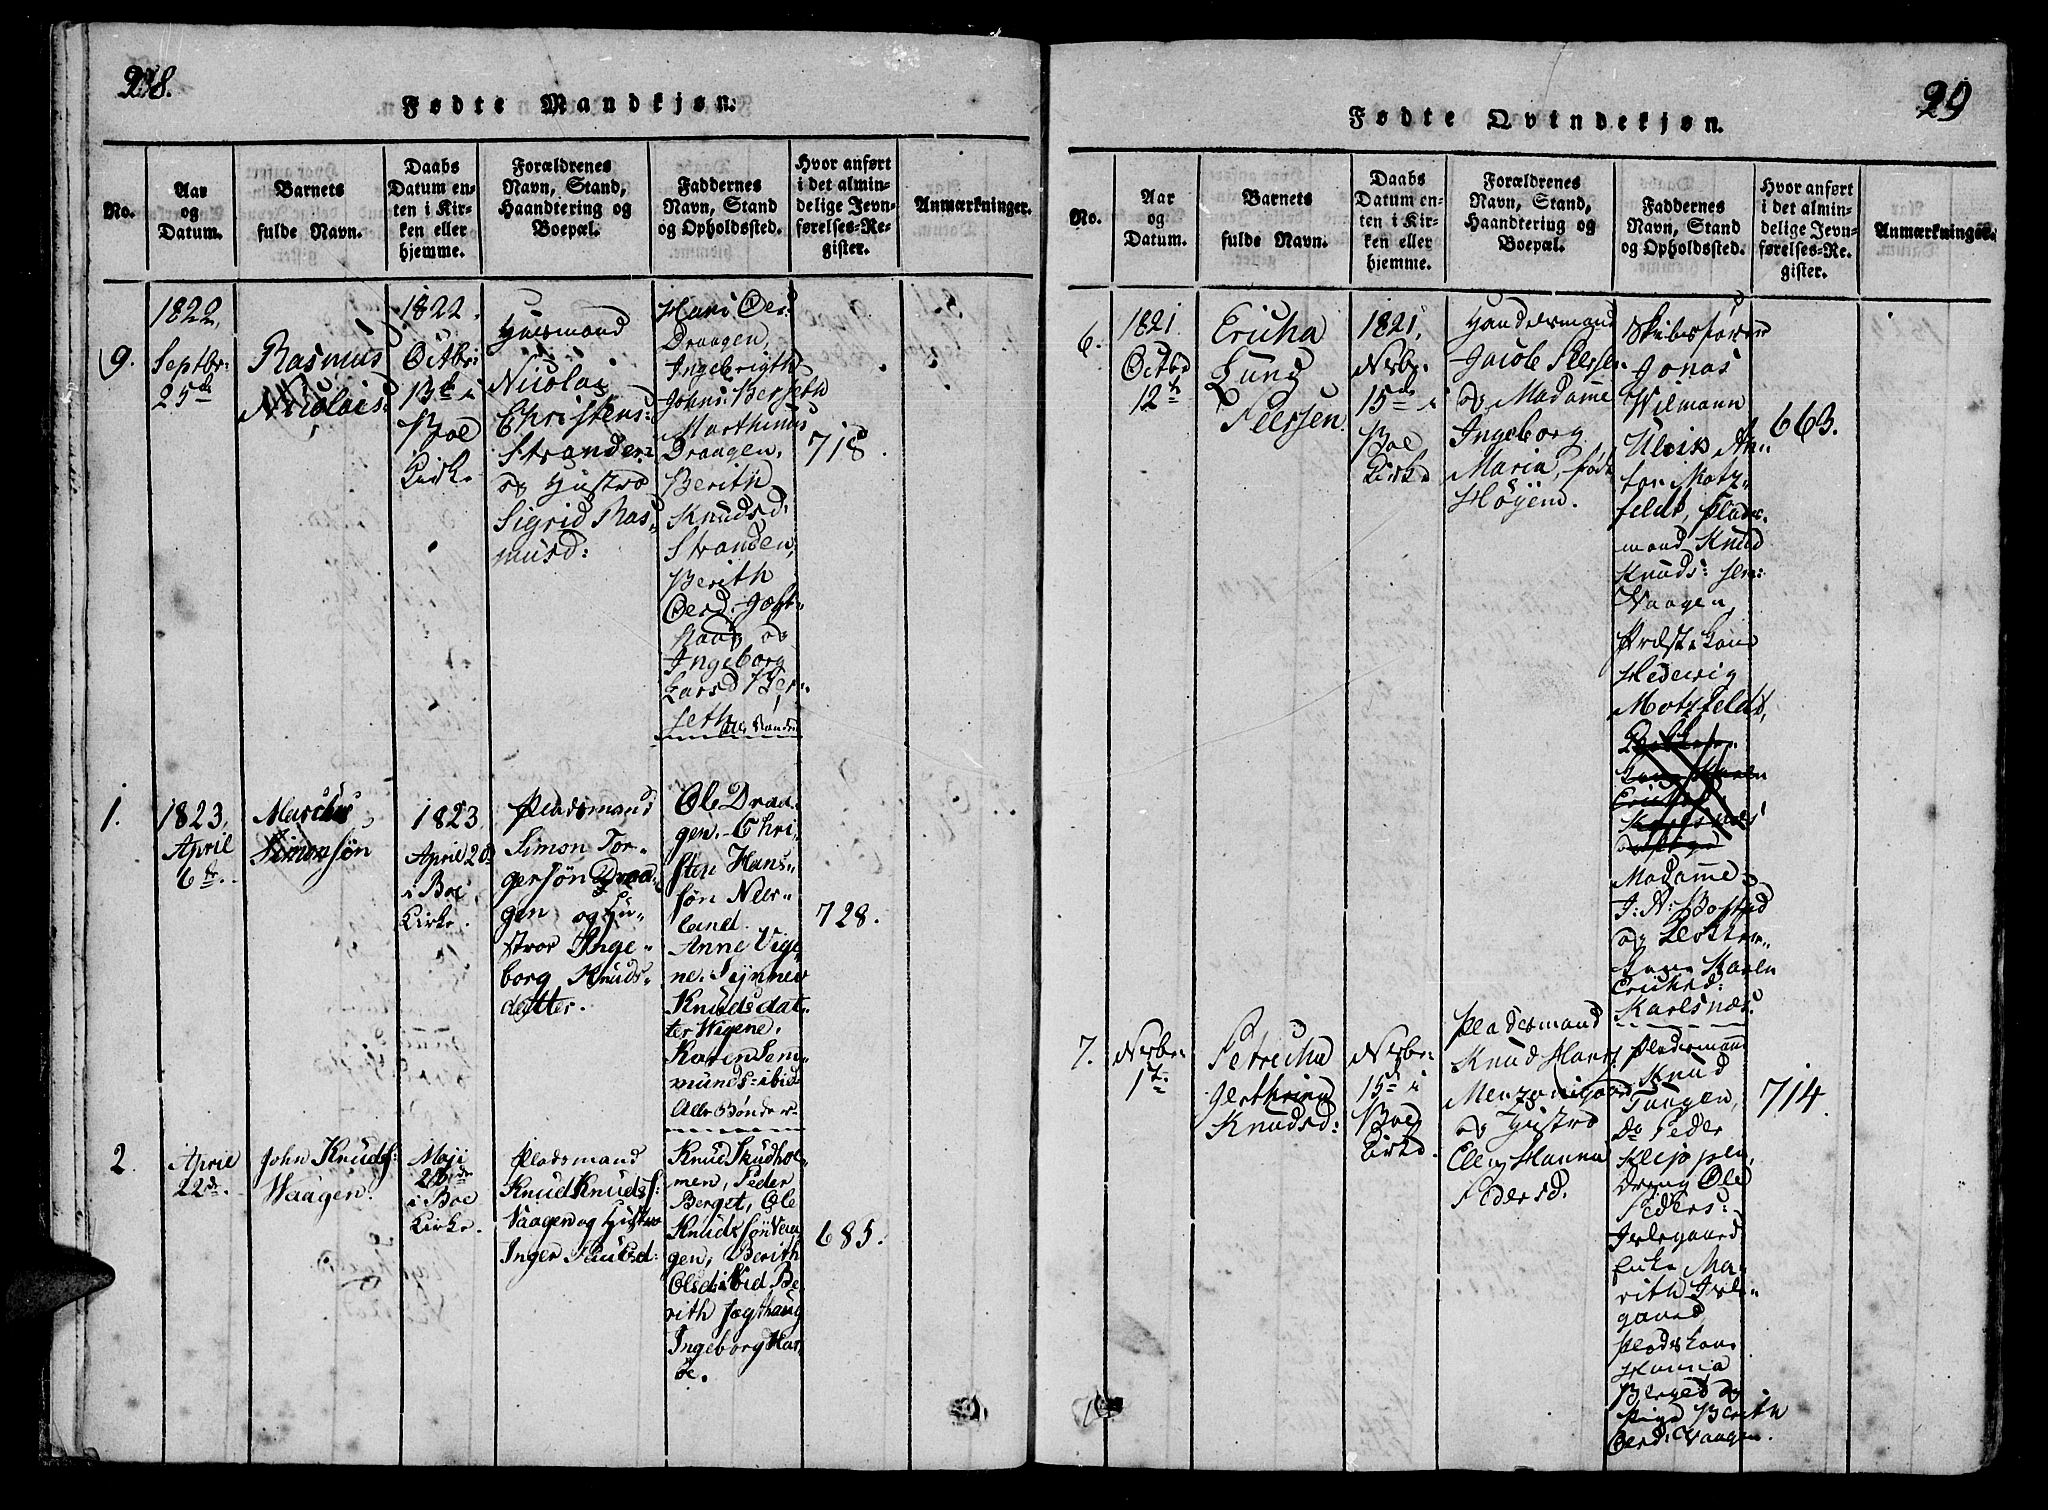 28.
Fødte Mandkjøn.
No.
Aar
og
Datum.
Barnets
fulde Navn.
Daabs
Datum en-
ten i Kir-
ken eller
hjemme.
Forældrenes
Navn, Stand,
Haandtering og
Boepæl.
Faddernes
Navn, Stand
og Opholdssted.
Hvor anført
i det almin-
delige Jevn-
førelses-Re-
gister.
Anmærkninger.
9.
1822
Septbr:
25de
Rasmus
Nicolais:
1822.
Octbr:
13de i
Boe
Kirke
Huusmand
Nicolai
Christens:
Stranden
og Hustro
Sigrid Ras-
musd:
Hans Oes:
Draagen,
Ingebrigth
Johns: Berseth
Marthinus
Draagen,
Berith
Knudsd:
Stranden,
Berith
Oesd. Jægt-
haug og
Ingeborg
Larsd Ber-
seth
718.
1.
1823,
April
6te.
Simonsøn
1823
April 20
i Boe
Kirke.
Pladsmand
Simon Tor-
gersøn Draa-
gen og Hu-
stroe Inge-
borg Knuds-
datter.
Ole Draa-
gen. Chri-
sten Hans-
søn Neer-
land.
Anne Vige-
ne. Synnev
Knudsdat-
ter Wigene.
Karen Sem-
munds: ibid
Alle Bønder
728.
2.
April
22de.
John Knuds:
Waagen.
Maji
i Boe
Kirke.
Pladsmand
Knud Knuds:
Vaagen og Hustro
Inger Paulsd:
Knud Skudhol-
men, Peder
Berget, Ole
Knudssøn Vaa-
gen, Berith
Olsd: ibid Be-
rith Jægthaug
Ingeborg Har-
øe.
685.
29
Fødte Qvindekjøn.
No.
Aar
og
Datum.
Barnets
fulde Navn.
Daabs
Datum en-
ten i Kir-
ken eller
hjemme.
Forældrenes
Navn, Stand,
Haandtering og
Boepæl.
Faddernes
Navn, Stand
og Opholdssted.
Hvor anført
i det almin-
delige Jevn-
førelses-Re-
gister.
Anmærkninger.
6.
1821
Octbr
12te
Ericha
Lund
Peersen
1821,
Nvbr.
15de i
Boe
Kirke
Handelsmand
Jacob Peersen
og Madamme
Ingeborg
Maria, født
Høyem.
Skibsfører
Jonas
Wilmann
Ulvik An-
ton Motz-
feldt, Plads-
mand Knud
Knuds: sen:
Vaagen,
Præstekone
Hedevig
Motzfeldt,
Madamme
J: N: Bostad
og Klokker-
kone Karen
Erichsd:
Karlsnæs.
663.
7.
Nvbr:
1te
Petricha
Gerthrina
Knudsd:
Nvbr:
15de i
Boe
Kirke.
Pladsmand
Knud Hans:
og Hustro
Ellen Hanna
Pedersd.
Pladsmann
Knud
Tangen,
Do Peder
Kleppen,
Dreng Ole
Peders:
Indregaard
Enke Ma-
rith Indre-
gaard,
Pladskone
Hanna
Berget og
Pige Berith
Oesd: Vaagen.
714.